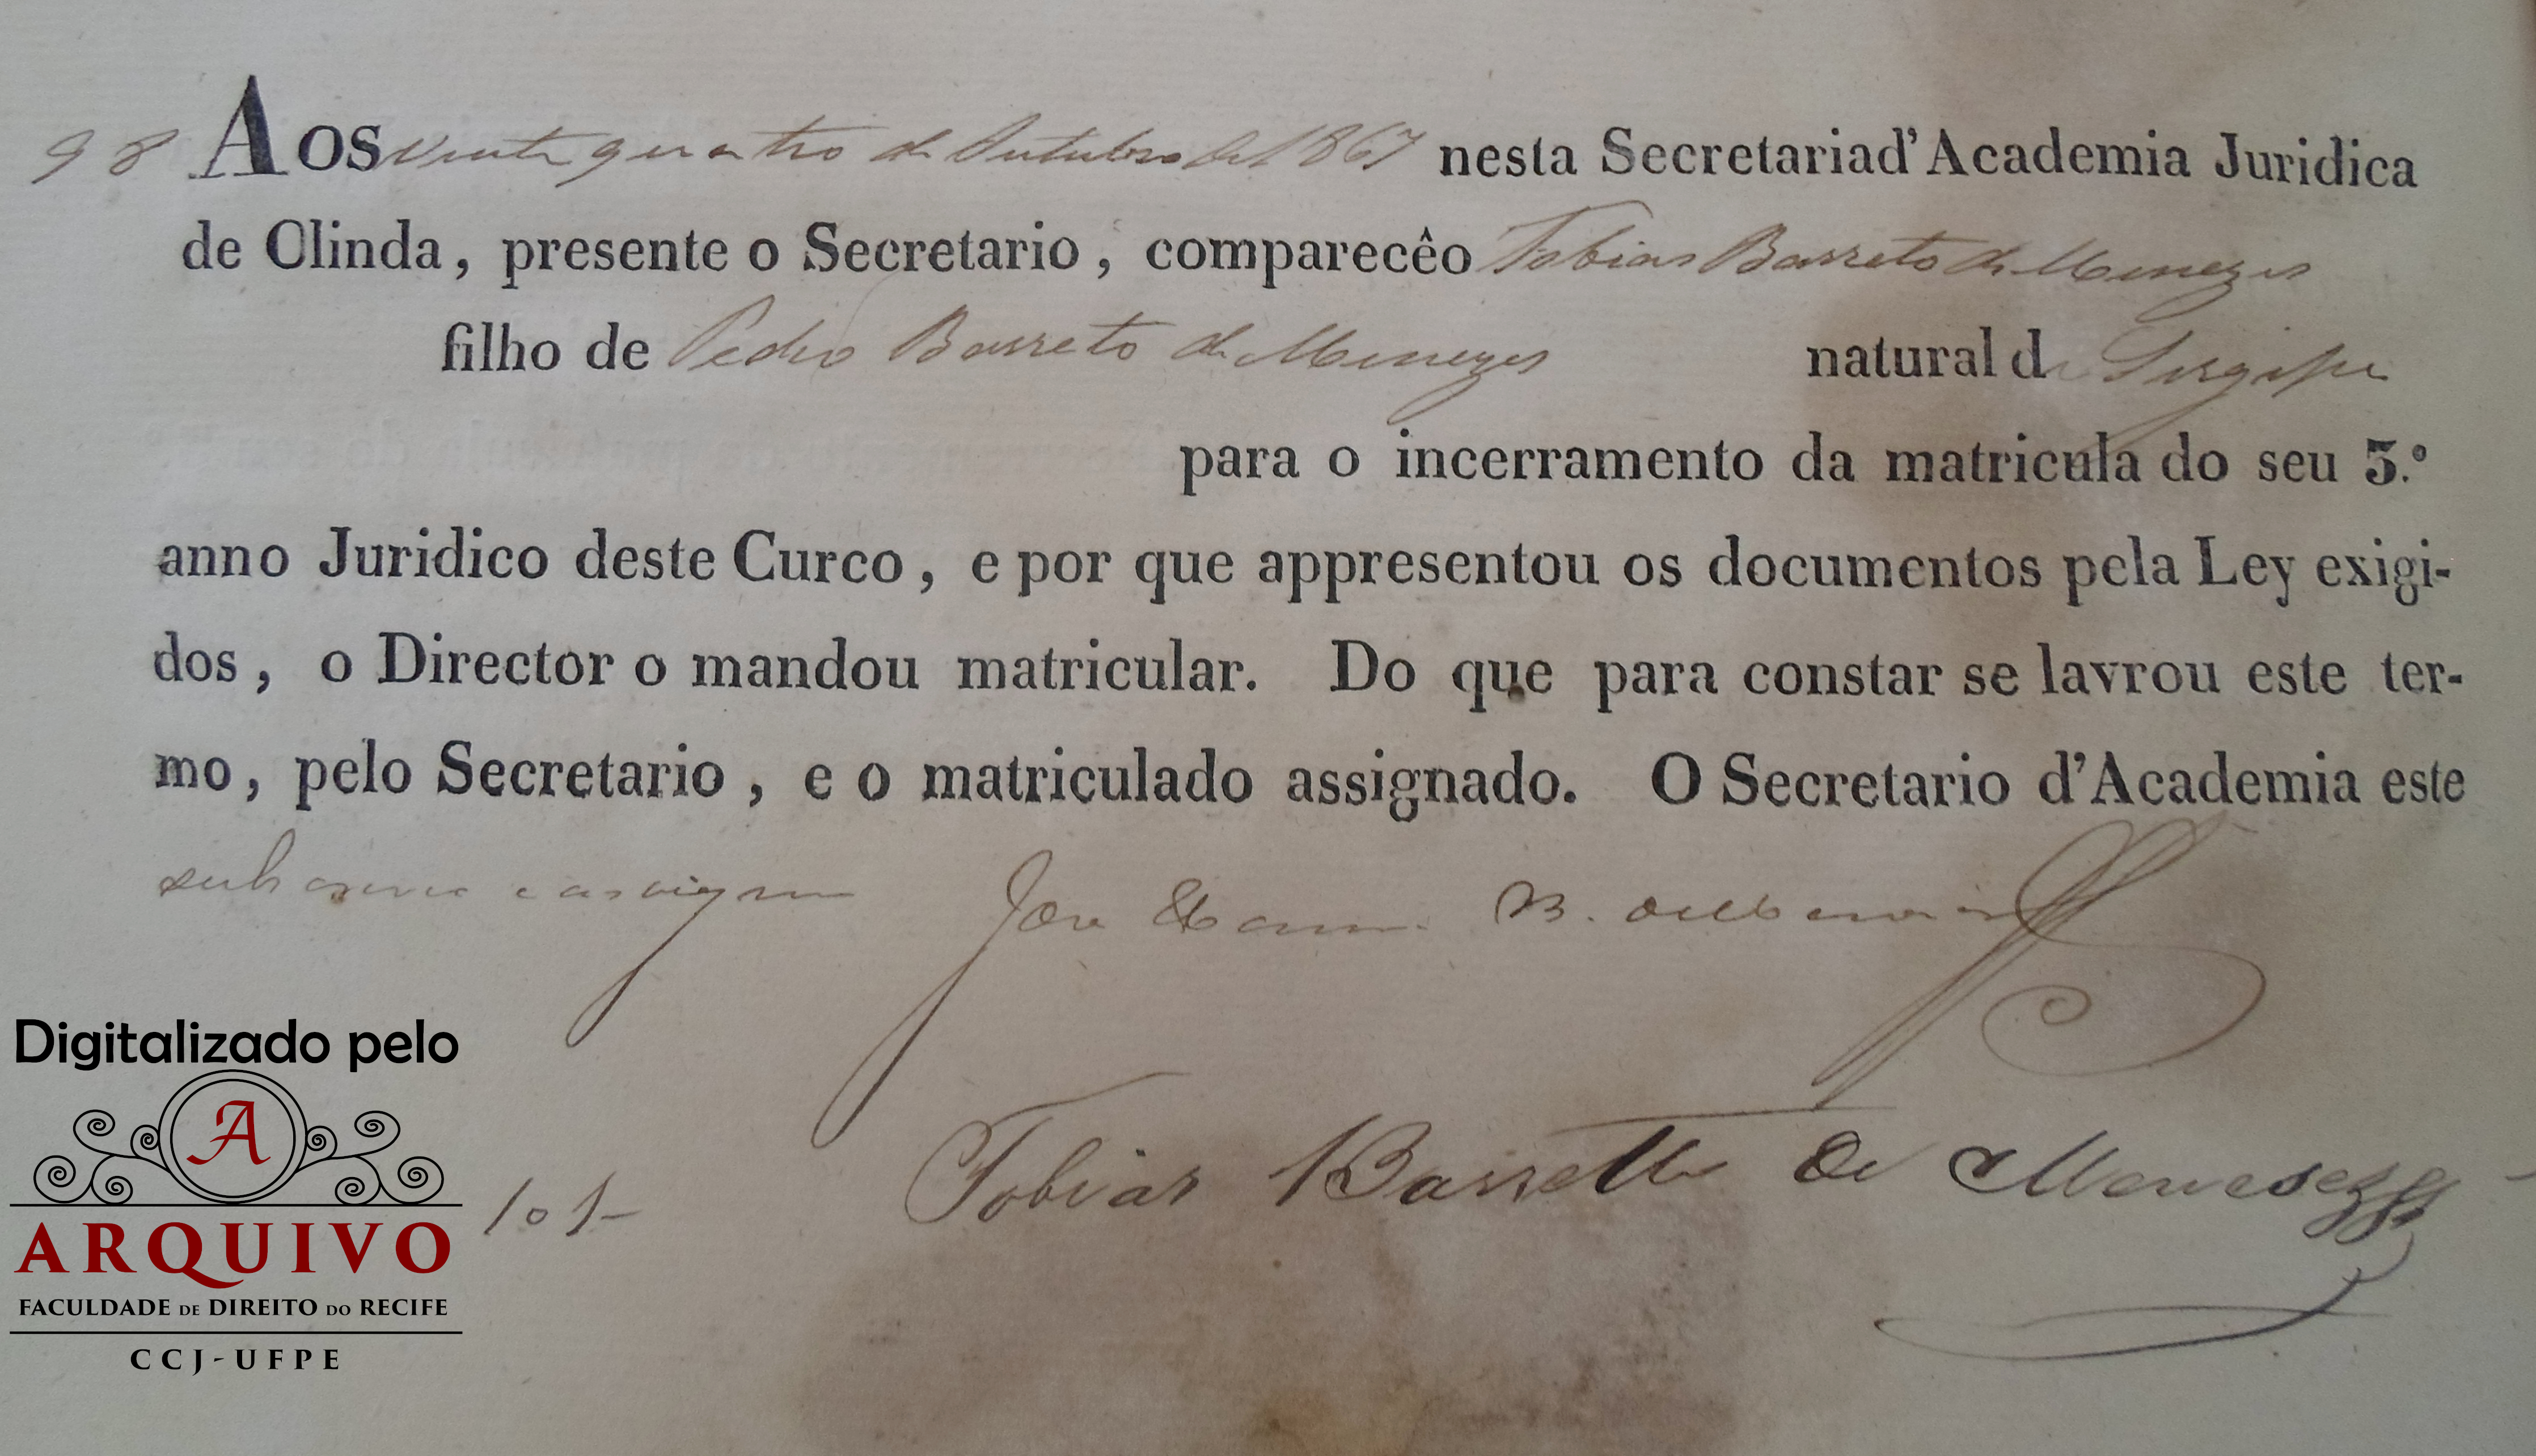 98 Aos vinte quatro de Outubro de 1867 nesta Secretaria d'Academia Juridica
de Olinda, presente o Secretario, comparecêo Tobias Barreto de Menezes
filho de Pedro Barreto de Menezes natural de Sergipe
para o incerramento da matricula do seu 3.º
anno Juridico deste Curco, e por que appresentou os documentos pela Ley exigi-
dos, o Director o mandou matricular. Do que para constar se lavrou este ter-
mo, pelo Secretario, e o matriculado assignado. O Secretario d'Academia este
subscrevi e assigno José B. de Menezes
Tobias Barretto de Menesezes
Digitalizado pelo
A
ARQUIVO
FACULDADE DE DIREITO DO RECIFE
CCJ-UFPE